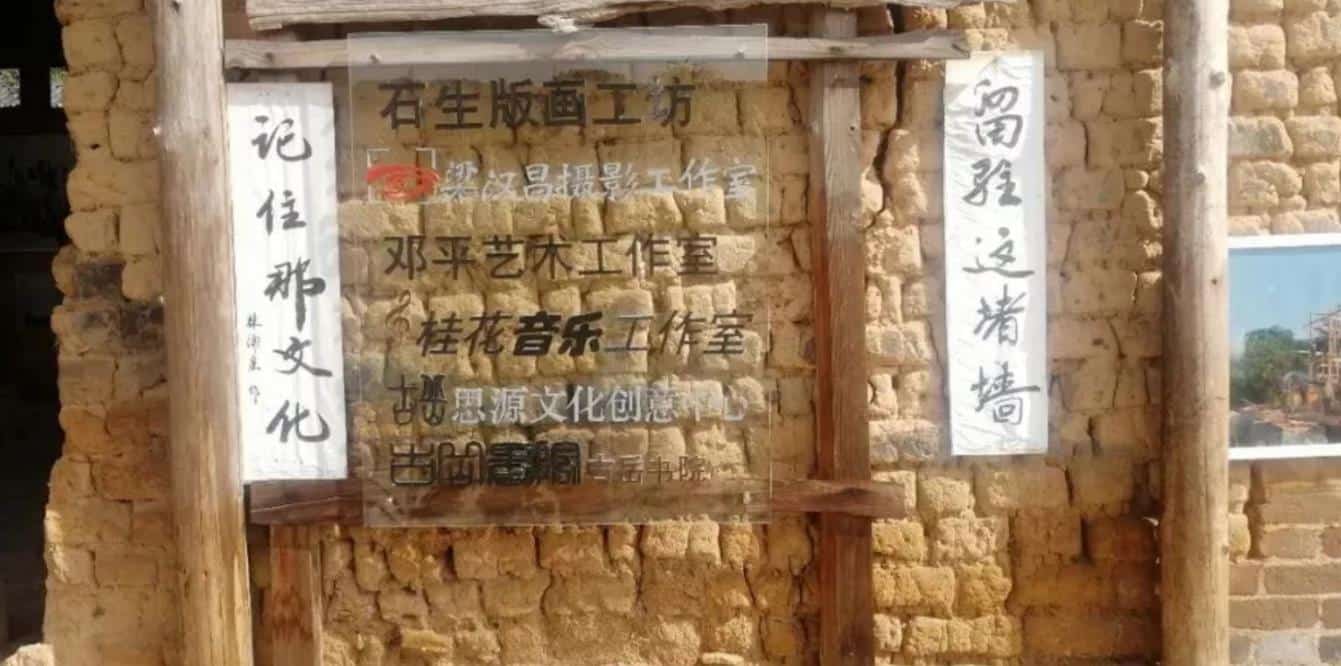 记住那文化
石生版画工坊
梁汉昌摄影工作室
邓平艺术工作室
桂花音乐工作室
思源文化创意中心
古岳书院
留驻这堵墙